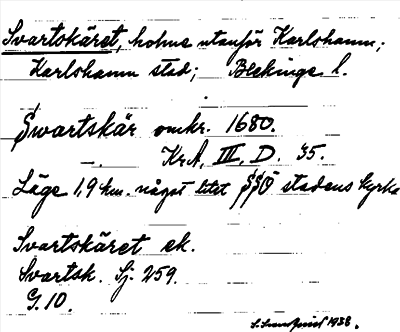 Svartskäret, holme utanför Karlshamn;
Karlshamn stad; Blekinge l.
Swartskär omkr. 1680.
Kr.A, III, D. 35.
Läge 1,9 km. något litet SSÖ stadens kyrka
Svartskäret ek.
Svartsk. Sj. 259.
G. 10.
1938.